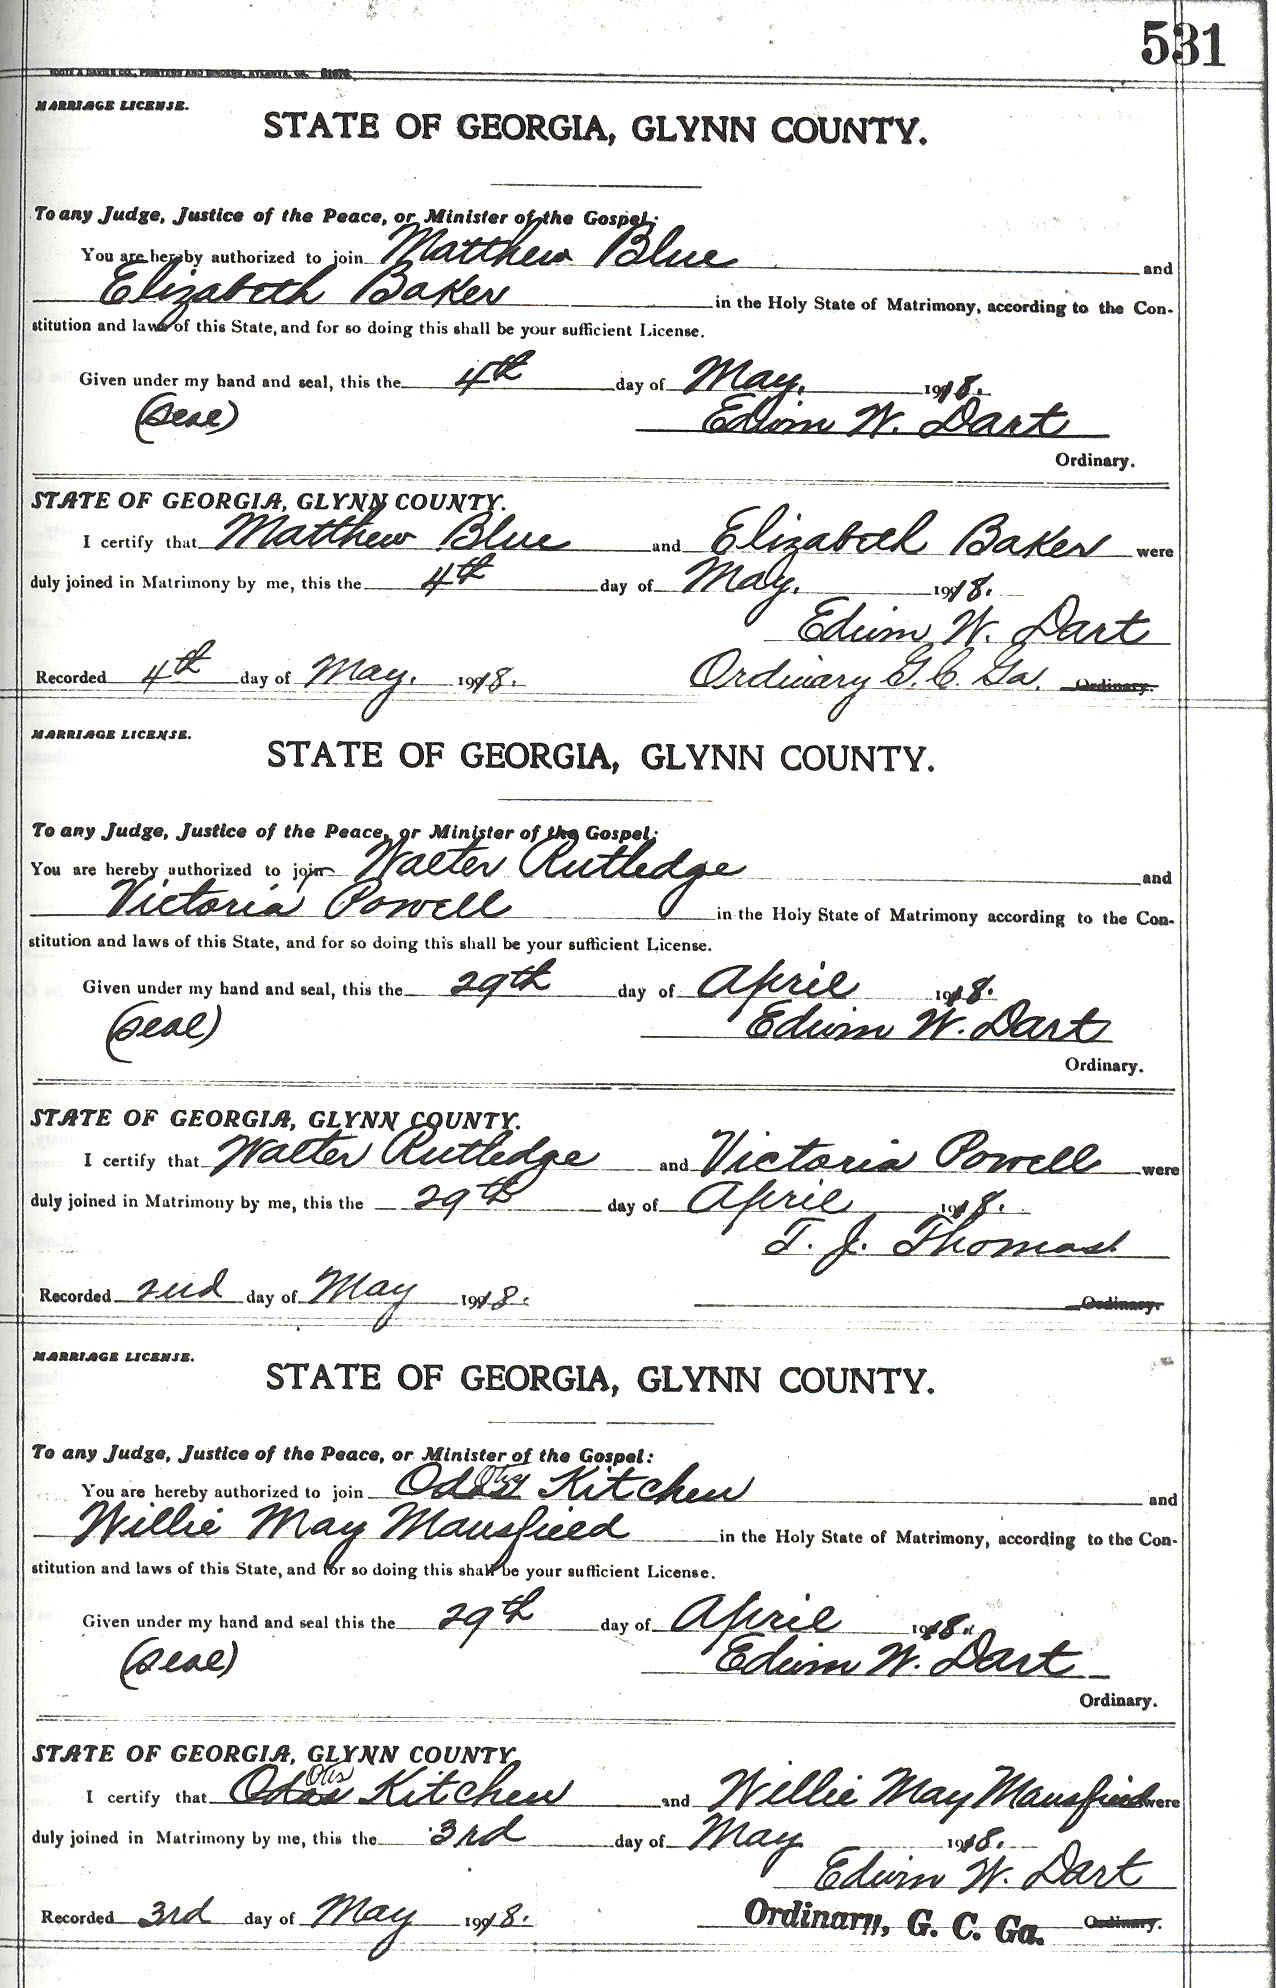 531
FOOTE & DAVIES CO., PRINTERS AND BINDERS, ATLANTA, GA.
MARRIAGE LICENSE.
STATE OF GEORGIA, GLYNN COUNTY.
To any Judge, Justice of the Peace, or Minister of the Gospel:
You are hereby authorized to join Matthew Blue and
Elizabeth Baker in the Holy State of Matrimony, according to the Con-
stitution and laws of this State, and for so doing this shall be your sufficient License.
Given under my hand and seal, this the 4th day of May, 1918.
(Seal) Edwin W. Dart
Ordinary.
STATE OF GEORGIA, GLYNN COUNTY.
I certify that Matthew Blue and Elizabeth Baker were
duly joined in Matrimony by me, this the 4th day of May, 1918.
Edwin W. Dart
Recorded 4th day of May, 1918. Ordinary G. C. Ga. Ordinary.
MARRIAGE LICENSE.
STATE OF GEORGIA, GLYNN COUNTY.
To any Judge, Justice of the Peace, or Minister of the Gospel:
You are hereby authorized to join Walter Rutledge and
Victoria Powell in the Holy State of Matrimony according to the Con-
stitution and laws of this State, and for so doing this shall be your sufficient License.
Given under my hand and seal, this the 29th day of April 1918.
(Seal) Edwin W. Dart
Ordinary.
STATE OF GEORGIA, GLYNN COUNTY.
I certify that Walter Rutledge and Victoria Powell were
duly joined in Matrimony by me, this the 29th day of April 1918.
T. J. Thomas
Recorded 2nd day of May 1918. Ordinary.
MARRIAGE LICENSE.
STATE OF GEORGIA, GLYNN COUNTY.
To any Judge, Justice of the Peace, or Minister of the Gospel:
You are hereby authorized to join Otis Kitchen and
Willie May Mansfield in the Holy State of Matrimony, according to the Con-
stitution and laws of this State, and for so doing this shall be your sufficient License.
Given under my hand and seal this the 29th day of April 1918.
(Seal) Edwin W. Dart
Ordinary.
STATE OF GEORGIA, GLYNN COUNTY.
I certify that Otis Kitchen and Willie May Mansfield were
duly joined in Matrimony by me, this the 3rd day of May 1918.
Edwin W. Dart
Recorded 3rd day of May 1918. Ordinary, G. C. Ga. Ordinary.